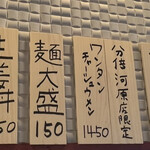 分倍河原店限定
ワンタン
チャーシューメン
1450
麺大盛
150
50